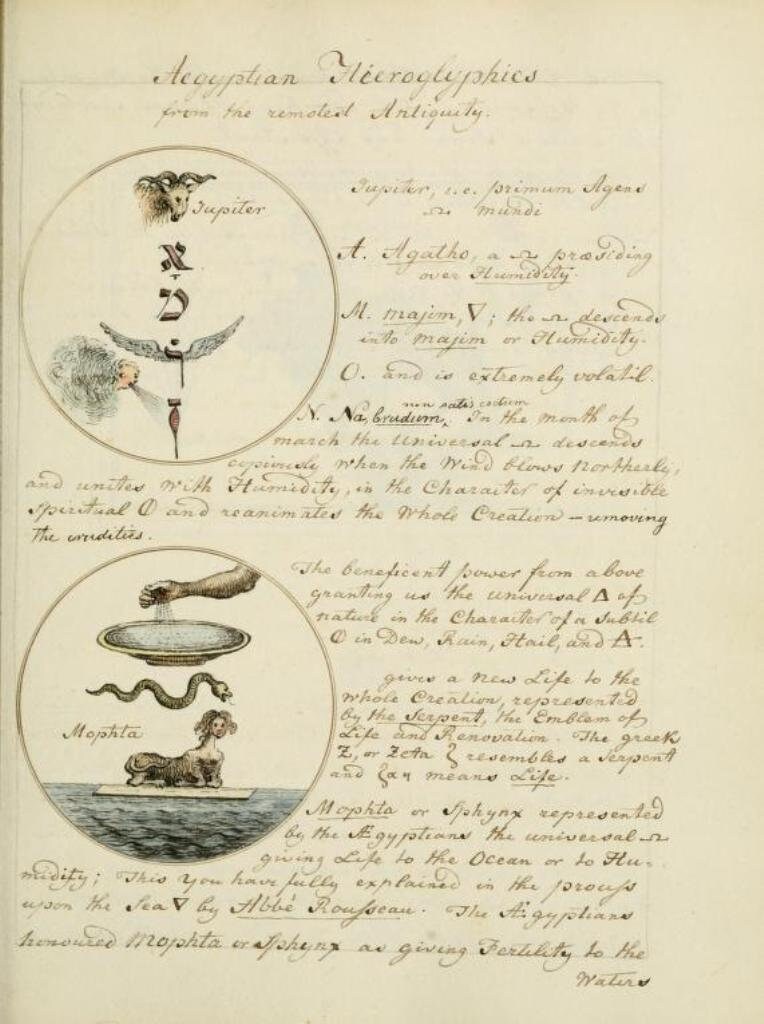 Aegyptian Hieroglyphics
from the remotest Antiquity.
Jupiter
א
מ
Jupiter, i.e. primum Agens
mundi
A. Agatho, a præsiding
over Humidity.
M. majim, ▽; the descends
into majim or Humidity.
O. and is extremely volatil.
non satis coctum
N. Na, Crudum. In the month of
march the Universal descends
copiously when the Wind blows northerly,
and unites with Humidity, in the Character of invisible
Spiritual and reanimates the Whole Creation – removing
the crudities.
The beneficent power from above
granting us the universal △ of
nature in the Character of a subtil
in Dew, Rain, Hail, and
gives a new Life to the
whole Creation, represented
by the Serpent, the Emblem of
Life and Renovation. The greek
Z, or Zeta ζ resembles a Serpent
and means Life.
Mophta
Mophta or Sphynx represented
by the Ægyptians the universal
giving Life to the Ocean or to Hu-
midity; This you have fully explained in the process
upon the Sea ▽ by Abbé Rousseau. The Ægyptians
honoured Mophta or Sphynx as giving Fertility to the
Waters